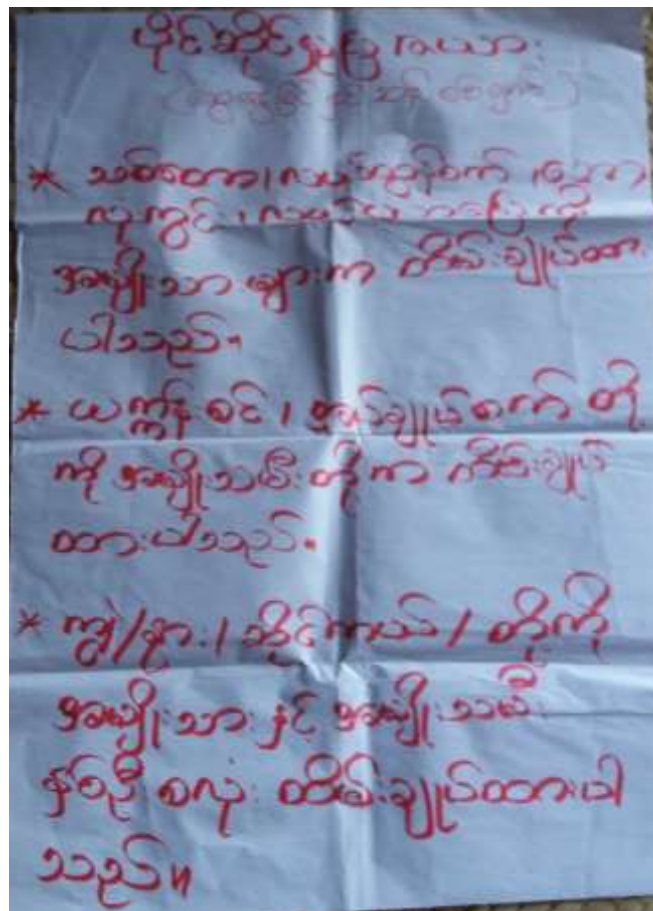 ပိုင်ဆိုင်မှုပြ ဇယား
* သစ်တော၊ လယ်ထွန်စက်၊
အမျိုးသား များက ထိမ်းချုပ်ထား
ပါသည်။
* ယက္ကန်းစင် ၊ အပ်ချုပ်စက် တို့
ကို အမျိုးသမီး တို့က ထိမ်းချုပ်
ထားပါသည်။
* ကျွဲ/နွား / ဆိုင်ကယ် / တို့ကို
အမျိုးသား နှင့် အမျိုးသမီး
နှစ်ဦး စလုံး ထိမ်းချုပ်ထားပါ
သည်။